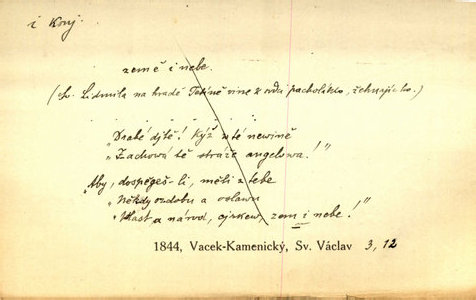 i Konj.
země i nebe.
(Sv. Lidmila na hradě Tetíně vine k srdci pacholíka, žehnajíc ho.)
. . . . . . .
„Drahé djtě! Kýž tě newinně
„Zachowá tě stráže angelowa!"
„Aby, dospěgeš-li, měli z tebe
„Někdy ozdobu a oslawu
„Wlast a národ, cjrkew, zem i nebe!"
1844, Vacek-Kamenický, Sv. Václav 3, 12